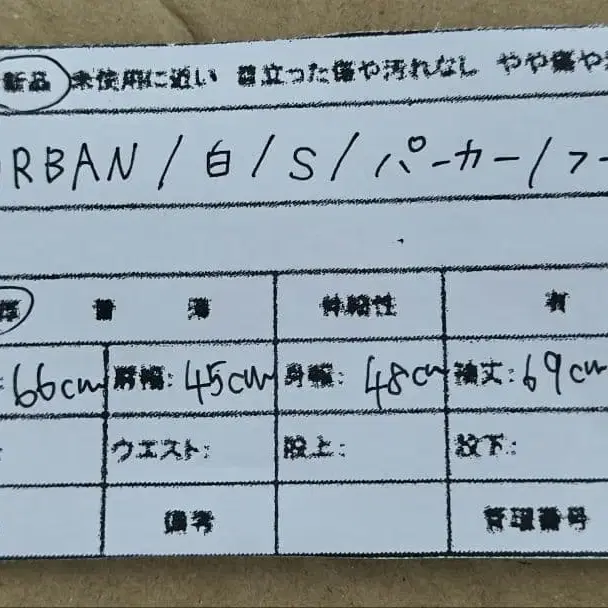 新品 未使用に近い 目立った傷や汚れなし やや傷や
RBAN / 白 / S / パーカー / フー
厚 普 薄 伸縮性 有
: 66cm 肩幅: 45cm 身幅: 48cm 袖丈: 69cm
: ウエスト: 股上: 股下:
備考 管理番号